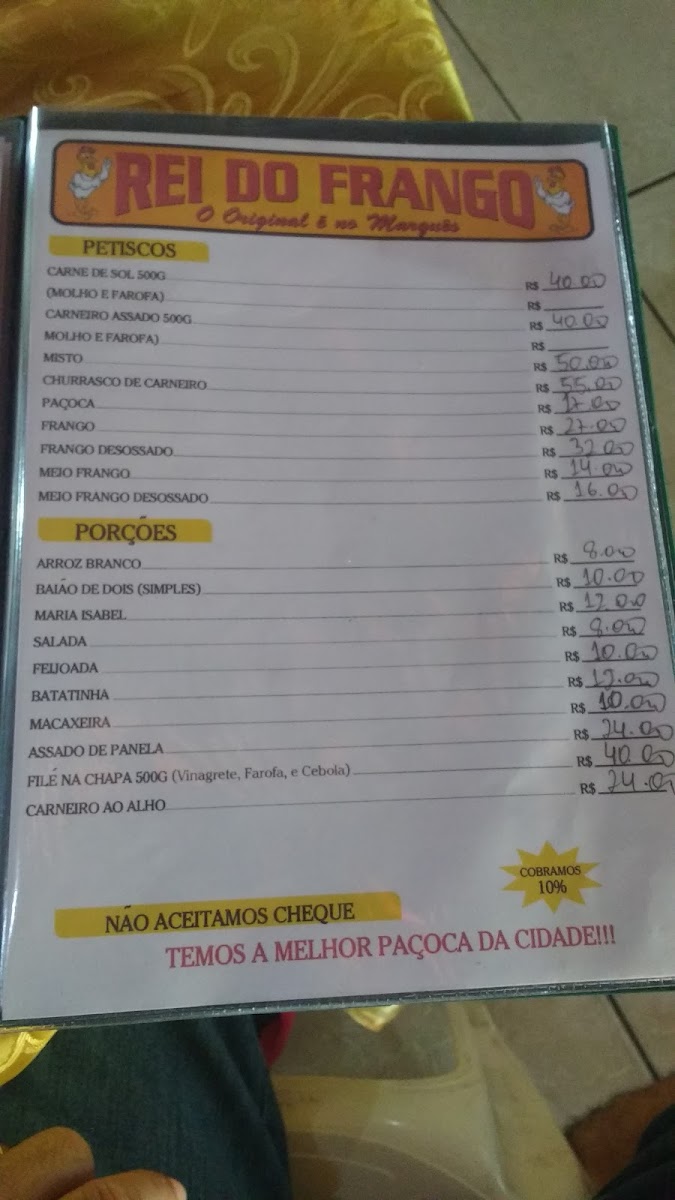 REI DO FRANGO
O Original é no Marquês
PETISCOS
CARNE DE SOL 500G R$ 40.00
(MOLHO E FAROFA) R$
CARNEIRO ASSADO 500G R$ 40.00
MOLHO E FAROFA) R$
MISTO R$ 50.00
CHURRASCO DE CARNEIRO R$ 55.00
PAÇOCA R$ 17.00
FRANGO R$ 27.00
FRANGO DESOSSADO R$ 32.00
MEIO FRANGO R$ 14.00
MEIO FRANGO DESOSSADO R$ 16.00
PORÇÕES
ARROZ BRANCO R$ 8.00
BAIÃO DE DOIS (SIMPLES) R$ 10.00
MARIA ISABEL R$ 12.00
SALADA R$ 8.00
FEIJOADA R$ 10.00
BATATINHA R$ 12.00
MACAXEIRA R$ 10.00
ASSADO DE PANELA R$ 24.00
FILÉ NA CHAPA 500G (Vinagrete, Farofa, e Cebola) R$ 40.00
CARNEIRO AO ALHO R$ 24.00
COBRAMOS
10%
NÃO ACEITAMOS CHEQUE
TEMOS A MELHOR PAÇOCA DA CIDADE!!!